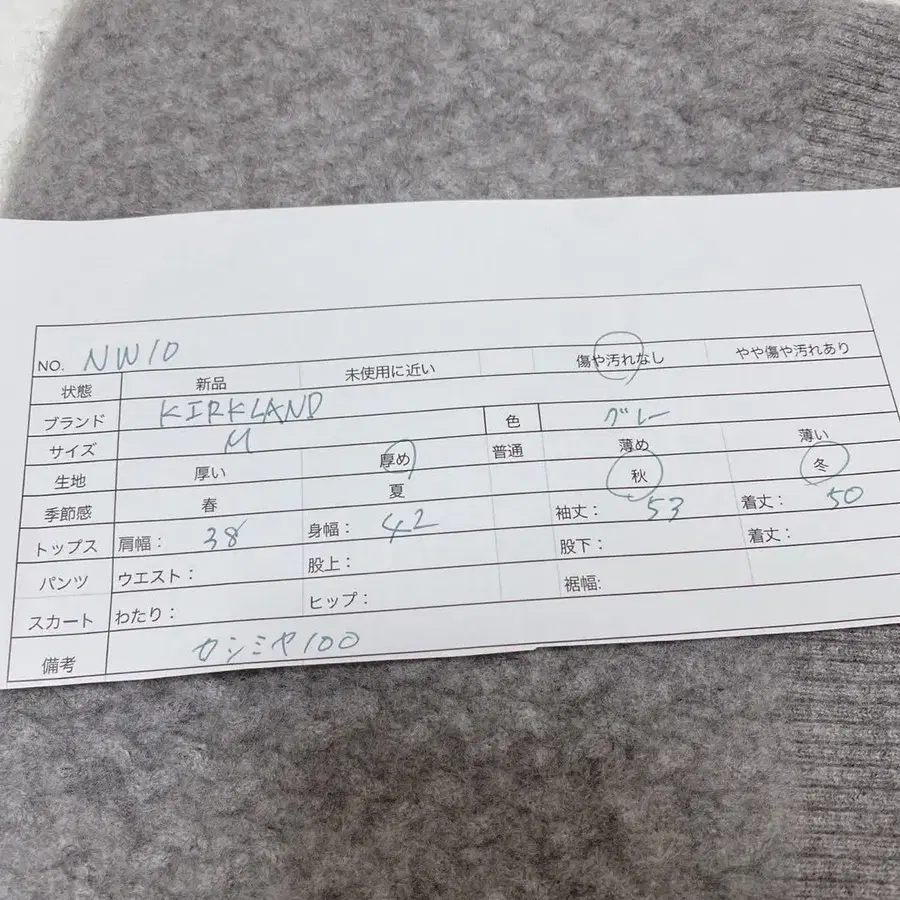 NO. NW10
状態 新品 未使用に近い 傷や汚れなし やや傷や汚れあり
ブランド KIRKLAND
サイズ M 色 グレー
生地 厚い 厚め 普通 薄め 薄い
季節感 春 夏 秋 冬
トップス 肩幅： 38 身幅： 42 袖丈： 53 着丈： 50
パンツ ウエスト： 股上： 股下： 着丈：
スカート わたり： ヒップ： 裾幅:
備考 カシミヤ100